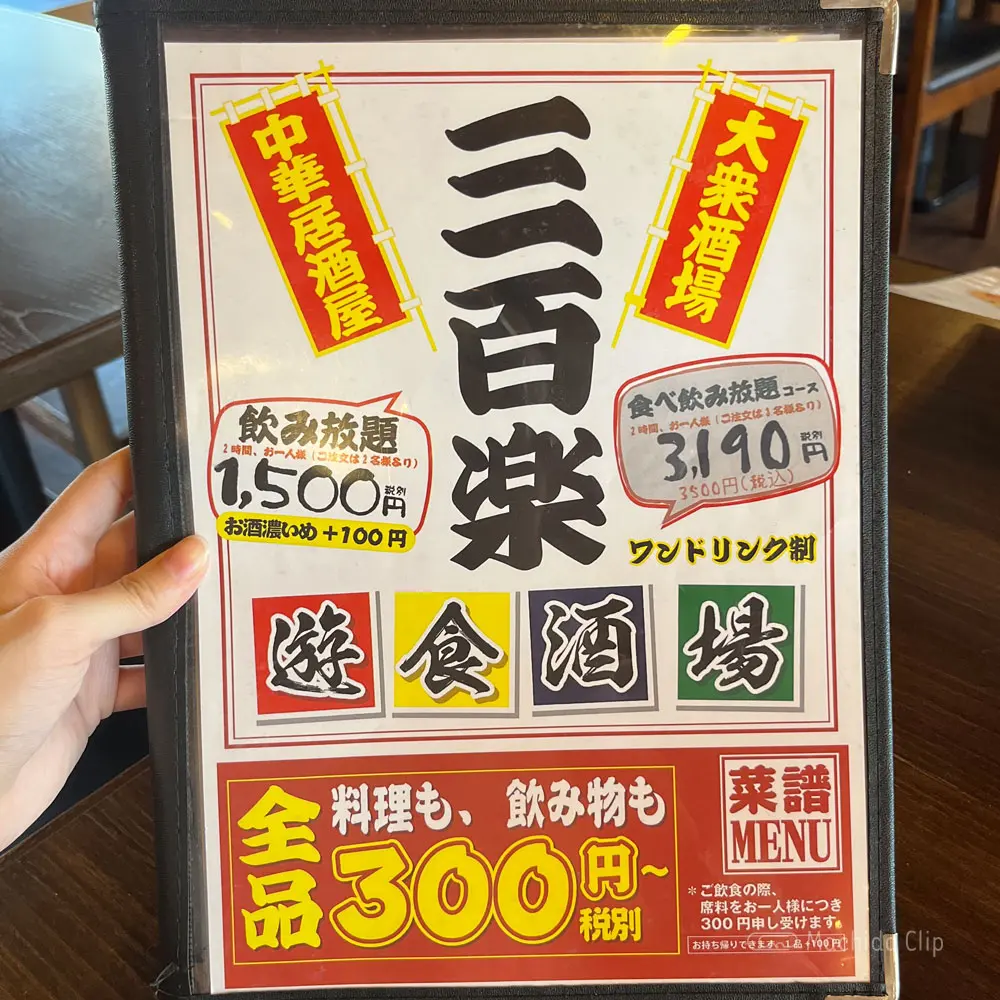 中華居酒屋
三百楽
大衆酒場
飲み放題
2時間、お一人様(ご注文は2名様より)
1,500円 税別
お酒濃いめ+100円
食べ飲み放題コース
2時間、お一人様(ご注文は2名様より)
3,190円 税別
3500円(税込)
ワンドリンク制
遊食酒場
全品
料理も、飲み物も
300円~
税別
菜譜
MENU
*ご飲食の際、
席料をお一人様につき
300円申し受けます。
お持ち帰りできます。1品+100円
Machida Clip